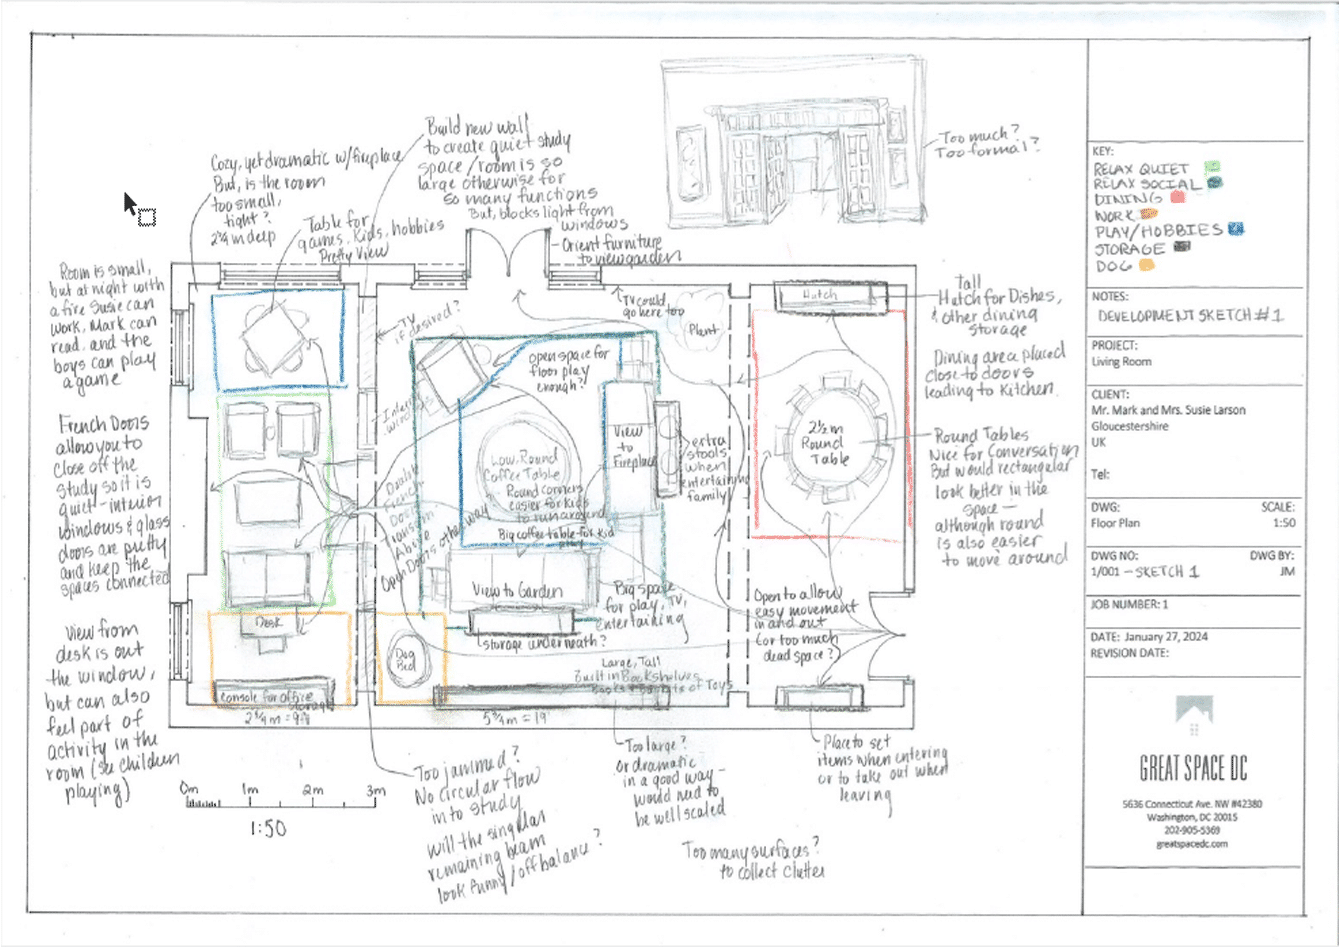 Build new wall
to create quiet study
space/room is so
large otherwise for
so many functions
But, blocks light from
windows
- Orient furniture
to view garden
Cozy, yet dramatic w/fireplace
But, is the room
too small,
tight?
2¾ m deep
Table for
games, Kids, hobbies
Pretty View
Too much?
Too formal?
Room is small,
but at night with
a fire Susie can
work, Mark can
read, and the
boys can play
a game
French Doors
allow you to
close off the
study so it is
quiet - interior
windows & glass
doors are pretty
and keep the
spaces connected
View from
desk is out
the window,
but can also
feel part of
activity in the
room (see children
playing)
TV
if desired?
TV could
go here too
Plant
open space for
floor play
enough?
View
to
Fireplace
extra
stools
when
entertaining
family
Low, Round
Coffee Table
Round corners
easier for kids
to run around
Big coffee table for kid
play
Double
French
Doors
Open Doors other way
View to Garden
Big space
for play, TV,
entertaining
storage underneath?
Desk
Dog
Bed
Console for office
storage
2¾m = 9ft
Large, Tall
Built in Bookshelves
Books & Baskets of Toys
5¾m = 19'
Hutch
2½ m
Round
Table
Open to allow
easy movement
in and out
(or too much
dead space?)
Tall
Hutch for Dishes,
& other dining
storage
Dining area placed
close to doors
leading to Kitchen.
Round Tables
Nice for Conversation
But would rectangular
look better in the
space -
although round
is also easier
to move around
Too jammed?
No circular flow
into study
will the singular
remaining beam
look funny/off balance?
Too large?
or dramatic
in a good way -
would need to
be well scaled
Place to set
items when entering
or to take out when
leaving
Too many surfaces?
to collect clutter
0m 1m 2m 3m
1:50
KEY:
RELAX QUIET
RELAX SOCIAL
DINING
WORK
PLAY/HOBBIES
STORAGE
DOG
NOTES:
DEVELOPMENT SKETCH #1
PROJECT:
Living Room
CLIENT:
Mr. Mark and Mrs. Susie Larson
Gloucestershire
UK
Tel:
DWG: SCALE:
Floor Plan 1:50
DWG NO: DWG BY:
1/001 - SKETCH 1 JM
JOB NUMBER: 1
DATE: January 27, 2024
REVISION DATE:
GREAT SPACE DC
5636 Connecticut Ave. NW #42380
Washington, DC 20015
202-905-5369
greatspacedc.com